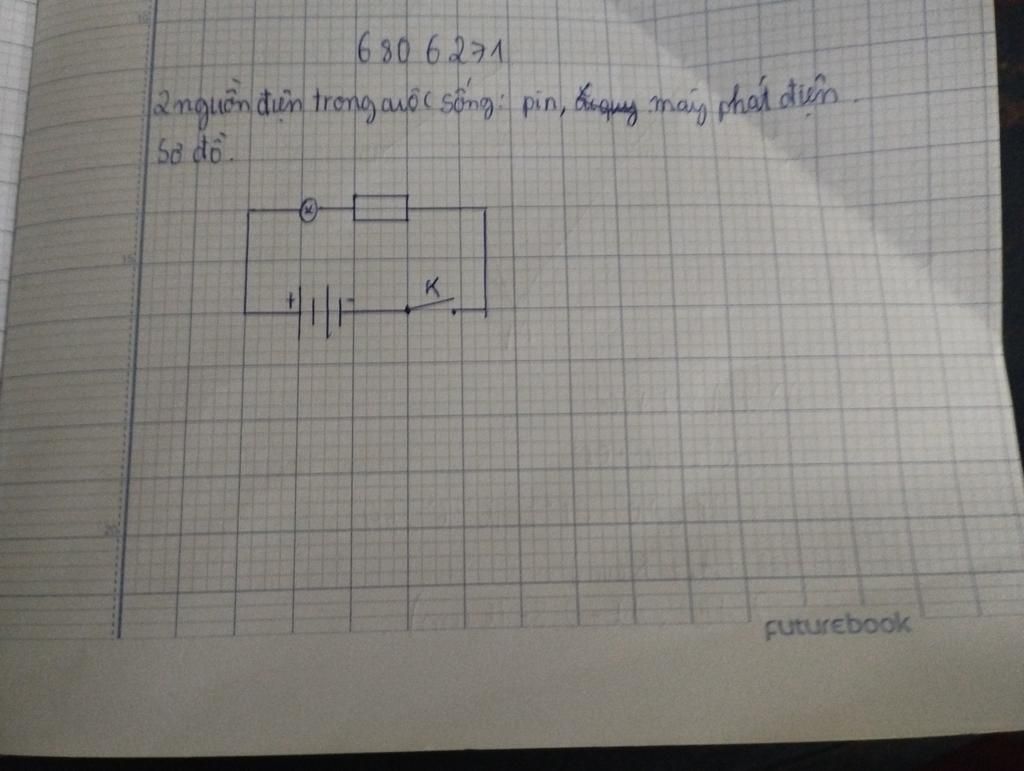 6806271
2 nguồn điện trong cuộc sống: pin, máy phát điện.
Sơ đồ.
K
+ -
futurebook